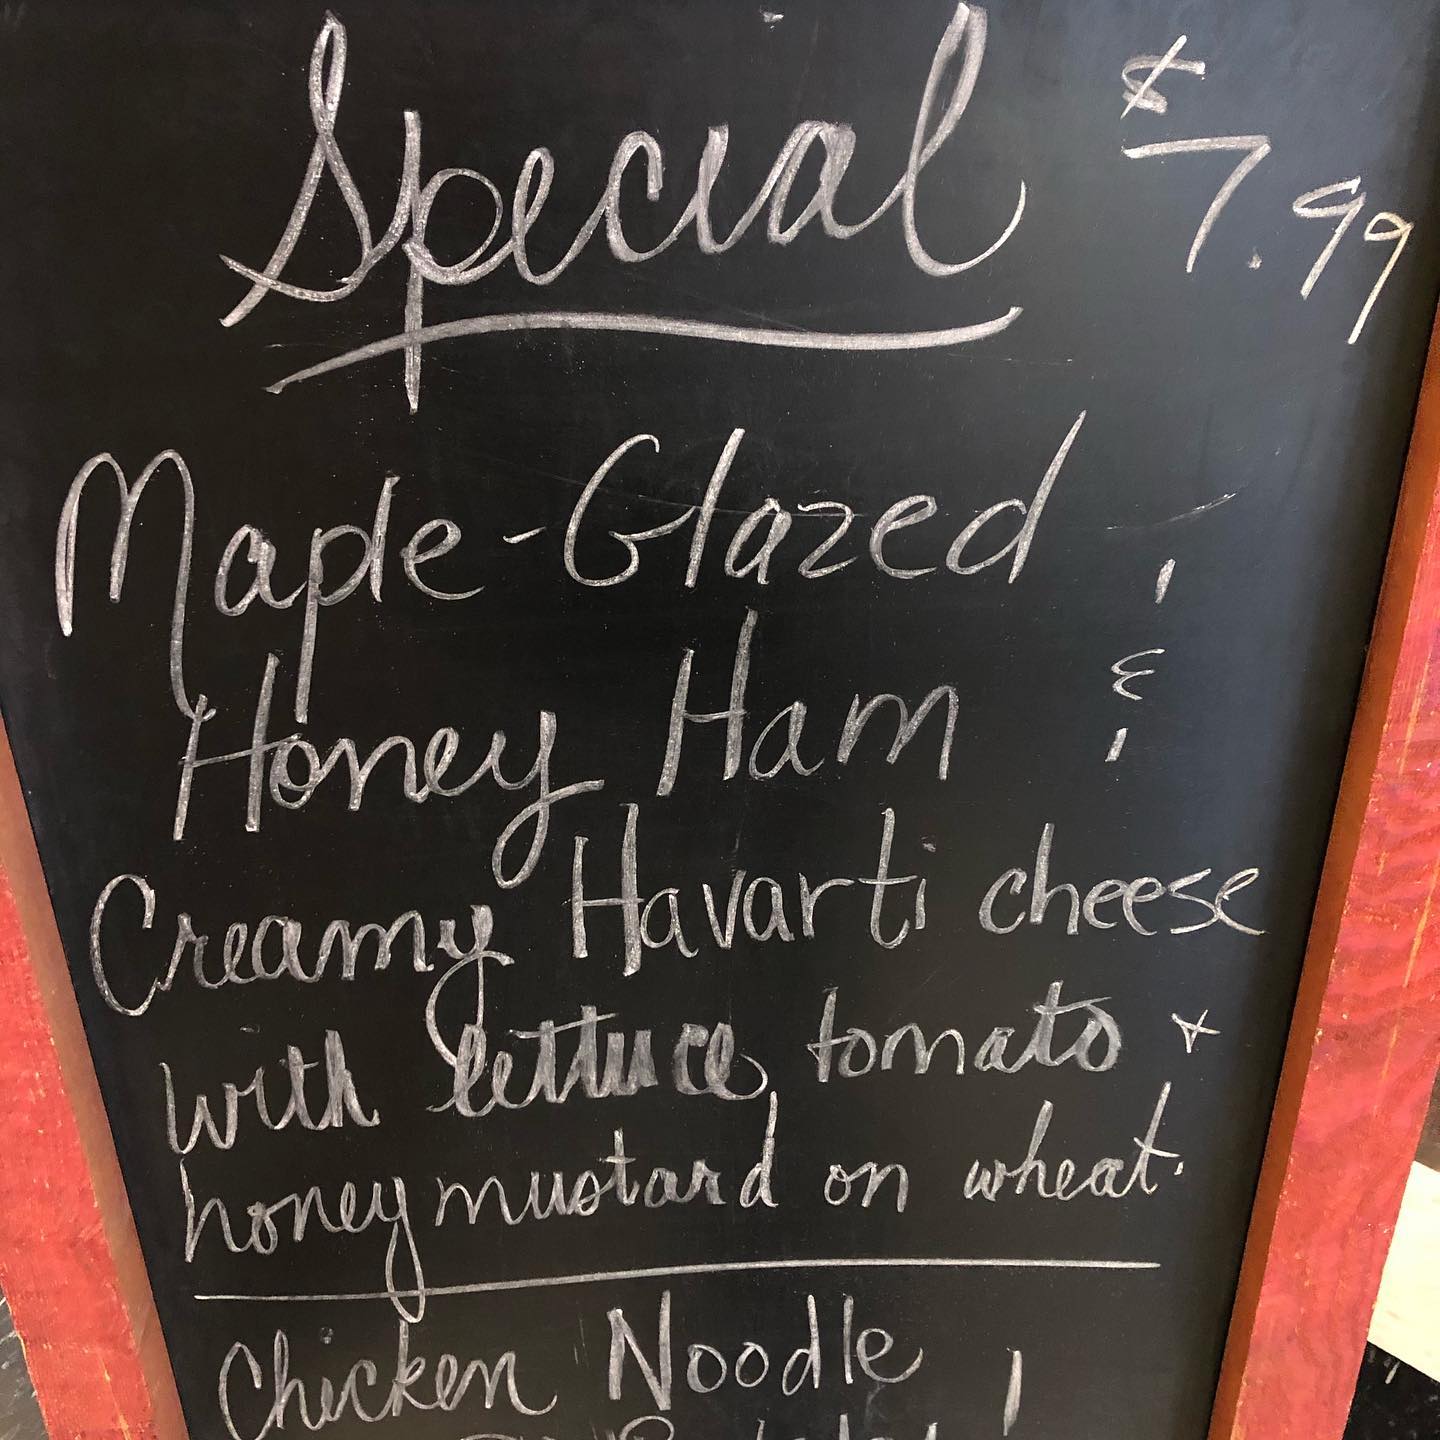 Special $7.99
Maple-Glazed
Honey Ham &
Creamy Havarti cheese
with lettuce, tomato +
honey mustard on wheat.
Chicken Noodle